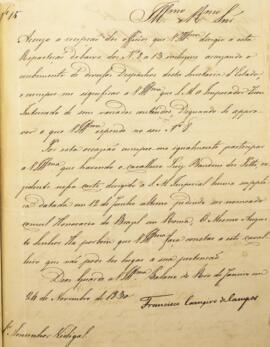 Nº 15
Illmo e Rmo Snr
Accuso a recepção dos officios que V. Illma dirigio a esta
Repartição debaixo dos Nos 2 a 13 inclusive accusando o
recebimento de diversos Despachos desta Secretaria d'Estado,
e cumpre-me significar a V. Illma que S. M. o Imperador ficou
Inteirado de seus variados contheudos, Dignando-se appro-
var o que V. Illma expende no seu Nº 8.
Por esta occasião cumpre-me igualmente participar
a V. Illma que havendo o Cavalleiro Luiz
dirigido a S. M. Imperial huma supplica
datada em 12 de Junho ultimo pedindo ser nomeado
Consul Honorario do Brazil em Roma, O Mesmo Augus-
to Senhor Ha por bem que V. Illma faça constar a este Caval-
leiro que não pode ter lugar a sua pertenção.
Deos Guarde a V. Illma Palacio do Rio de Janeiro em
24 de Novembro de 1830
Francisco Carneiro de Campos
Sr. Monsenhor Vidigal.